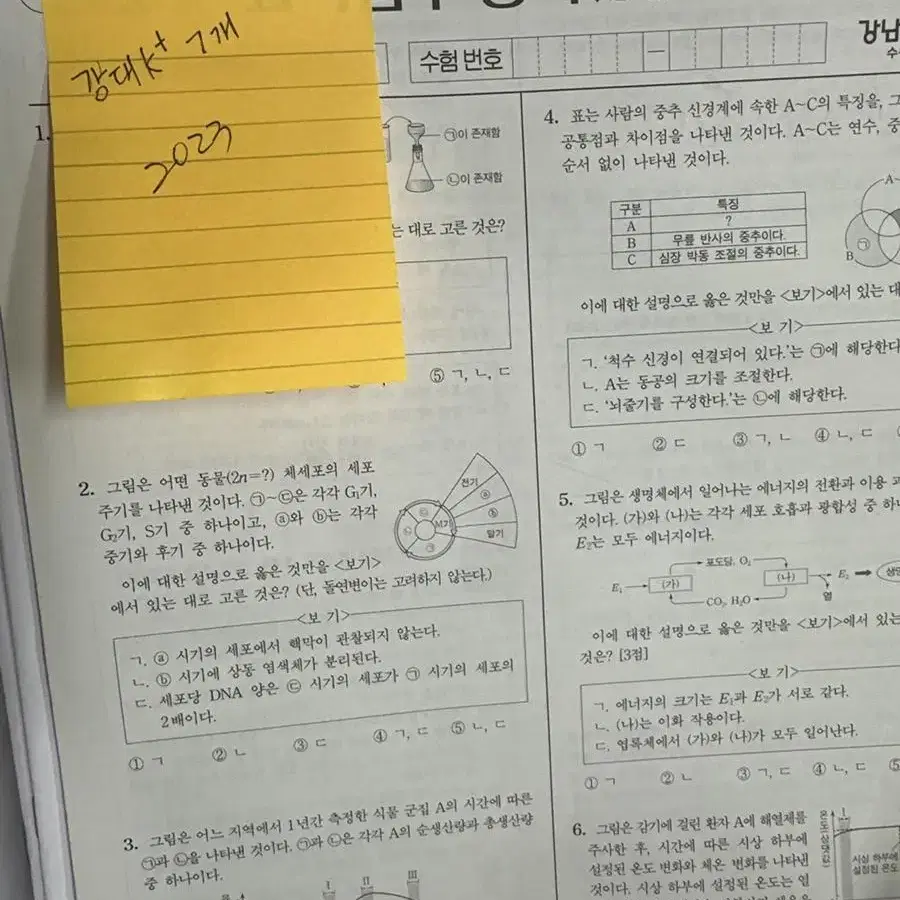 강대K+ 7개
2023
수험 번호
강남
1.
㉠이 존재함
㉡이 존재함
는 대로 고른 것은?
⑤ ㄱ, ㄴ, ㄷ
2. 그림은 어떤 동물(2n=?) 체세포의 세포
주기를 나타낸 것이다. ㉠~㉢은 각각 G₁기,
G₂기, S기 중 하나이고, ⓐ와 ⓑ는 각각
중기와 후기 중 하나이다.
전기
ⓐ
ⓑ
말기
M기
㉢
㉡
㉠
이에 대한 설명으로 옳은 것만을 <보기>
에서 있는 대로 고른 것은? (단, 돌연변이는 고려하지 않는다.)
<보 기>
ㄱ. ⓐ 시기의 세포에서 핵막이 관찰되지 않는다.
ㄴ. ⓑ 시기에 상동 염색체가 분리된다.
ㄷ. 세포당 DNA 양은 ㉢ 시기의 세포가 ㉠ 시기의 세포의
2배이다.
① ㄱ ② ㄴ ③ ㄷ ④ ㄱ, ㄷ ⑤ ㄴ, ㄷ
3. 그림은 어느 지역에서 1년간 측정한 식물 군집 A의 시간에 따른
㉠과 ㉡을 나타낸 것이다. ㉠과 ㉡은 각각 A의 순생산량과 총생산량
중 하나이다.
I II III
4. 표는 사람의 중추 신경계에 속한 A~C의 특징을, 그
공통점과 차이점을 나타낸 것이다. A~C는 연수, 중
순서 없이 나타낸 것이다.
구분 특징
A ?
B 무릎 반사의 중추이다.
C 심장 박동 조절의 중추이다.
A
㉠
B
이에 대한 설명으로 옳은 것만을 <보기>에서 있는 대
<보 기>
ㄱ. '척수 신경이 연결되어 있다.'는 ㉠에 해당한다
ㄴ. A는 동공의 크기를 조절한다.
ㄷ. '뇌줄기를 구성한다.'는 ㉡에 해당한다.
① ㄱ ② ㄷ ③ ㄱ, ㄴ ④ ㄴ, ㄷ
5. 그림은 생명체에서 일어나는 에너지의 전환과 이용 과
것이다. (가)와 (나)는 각각 세포 호흡과 광합성 중 하나
E₂는 모두 에너지이다.
포도당, O₂
E₁ (가) (나) E₂ 생
CO₂, H₂O 열
이에 대한 설명으로 옳은 것만을 <보기>에서 있는
것은? [3점]
<보 기>
ㄱ. 에너지의 크기는 E₁과 E₂가 서로 같다.
ㄴ. (나)는 이화 작용이다.
ㄷ. 엽록체에서 (가)와 (나)가 모두 일어난다.
① ㄱ ② ㄴ ③ ㄱ, ㄷ ④ ㄴ, ㄷ
6. 그림은 감기에 걸린 환자 A에 해열제를
주사한 후, 시간에 따른 시상 하부에
설정된 온도 변화와 체온 변화를 나타낸
것이다. 시상 하부에 설정된 온도는 열
온도(상댓값)
시상 하부에
설정된 온도